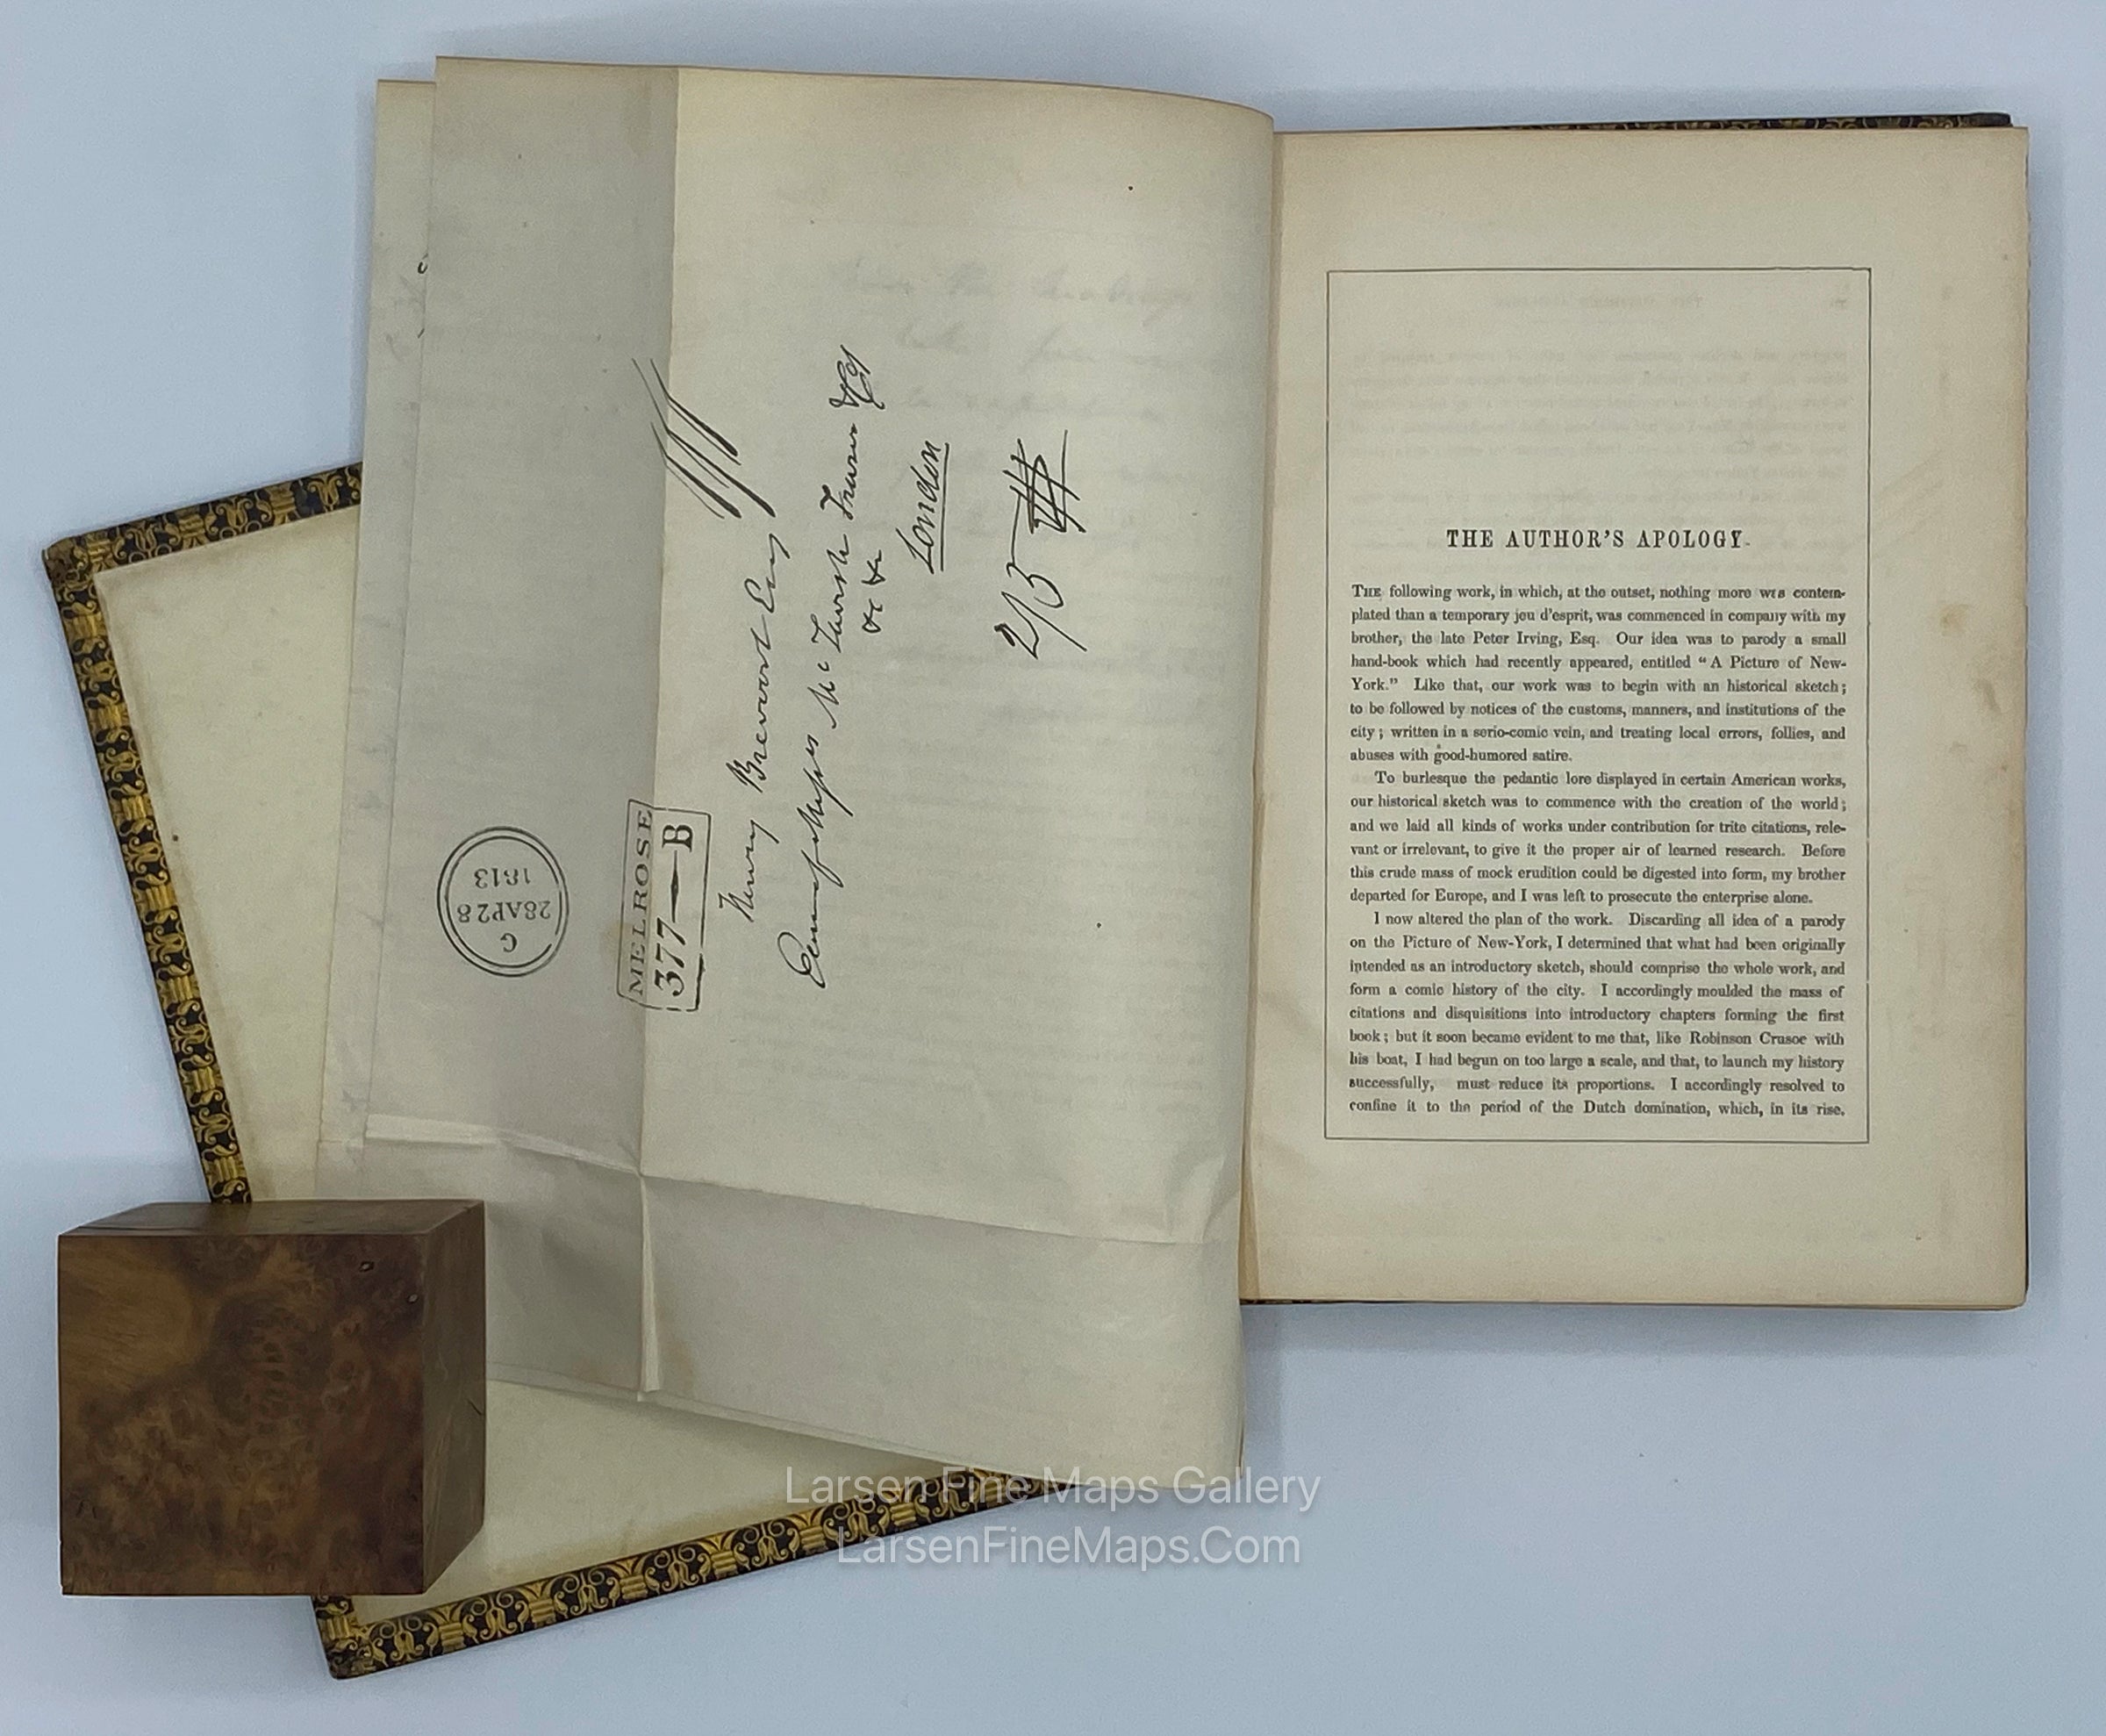 C
28AP28
1813
MELROSE
377—B
Henry Brevoort Esq
Care of Messrs Mc Tavish Fraser & Co
&c &c
London
2/5
THE AUTHOR'S APOLOGY.
THE following work, in which, at the outset, nothing more was contem-
plated than a temporary jeu d'esprit, was commenced in company with my
brother, the late Peter Irving, Esq. Our idea was to parody a small
hand-book which had recently appeared, entitled "A Picture of New-
York." Like that, our work was to begin with an historical sketch;
to be followed by notices of the customs, manners, and institutions of the
city; written in a serio-comic vein, and treating local errors, follies, and
abuses with good-humored satire.
To burlesque the pedantic lore displayed in certain American works,
our historical sketch was to commence with the creation of the world;
and we laid all kinds of works under contribution for trite citations, rele-
vant or irrelevant, to give it the proper air of learned research. Before
this crude mass of mock erudition could be digested into form, my brother
departed for Europe, and I was left to prosecute the enterprise alone.
I now altered the plan of the work. Discarding all idea of a parody
on the Picture of New-York, I determined that what had been originally
intended as an introductory sketch, should comprise the whole work, and
form a comic history of the city. I accordingly moulded the mass of
citations and disquisitions into introductory chapters forming the first
book; but it soon became evident to me that, like Robinson Crusoe with
his boat, I had begun on too large a scale, and that, to launch my history
successfully, must reduce its proportions. I accordingly resolved to
confine it to the period of the Dutch domination, which, in its rise,
Larsen Fine Maps Gallery
LarsenFineMaps.Com